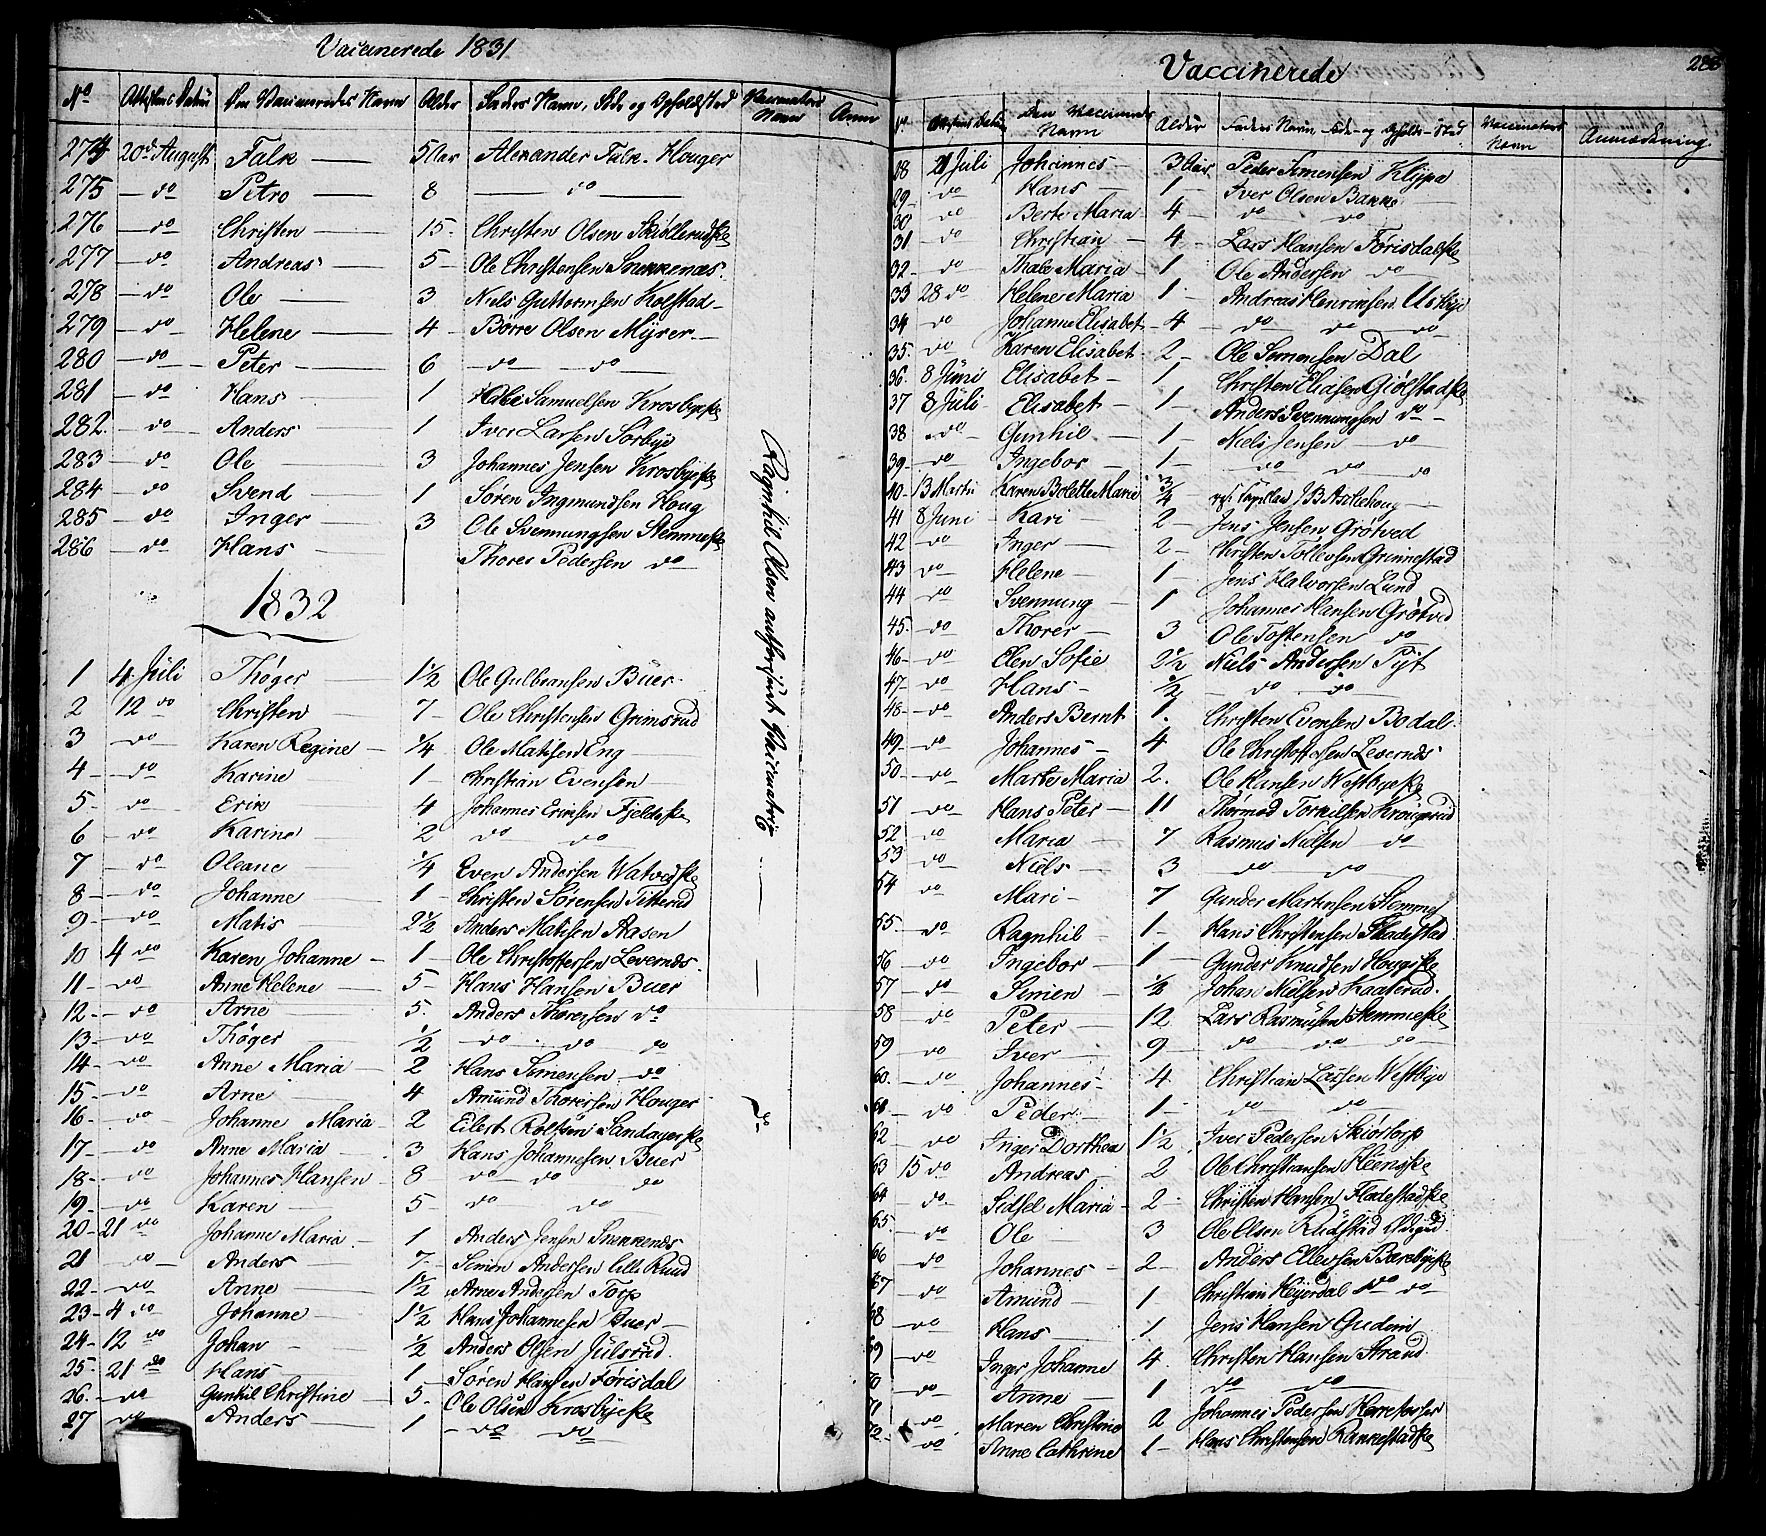 Vaccinerede 1831
No Attestens Datum Den Vaccineredes Navn Alder Faders Navn, Sted og Opholdsted Vaccinators Navn Anm
274 20de August Falk — 5 Aar Alexander Falk. Houger
275 — do Petro — 8 — do —
276 — do Christen — 15 - Christen Olsen Skiöllerudske
277 — do Andreas — 5 - Ole Christensen Snekkenæs.
278 — do Ole — 3 Niels Guttormsen Kolstad -
279 — do Helene — 4 - Börre Olsen Myrer. -
280 — do — Peter — 6 — do — do —
281 — do Hans — 1 Samuelsen Krosbyeske
282. — do — Anders — 1 Iver Larsen Sörbye
283 — do Ole — 3 Johannes Jensen Krosbyeske
284 — do Svend — 1 Sören Ingmundsen Houg
285 — do — Inger — 3 Ole Svennungsen Stemmeske
286 — do Hans — Thores Pedersen do
1832
1 4 Juli Thöger — 1 1/2 Ole Gulbransen Buer
2 12 do Christen — 7 - Ole Christensen Grimsrud
3 — do — Karen Regine — 1/4 Ole Matisen Eng —
4 — do Karine 1 — Christian Evensen
5 - do Erik 4 Johannes Eriksen Fjeldske
6 — do Karine 2 do do
7 — do Oleane 1/4 Even Andersen Watvedske
8 — do Johanne — 1 - Christen Sörensen Titterud
9 — do Matis — 2 1/2 Anders Matisen Aasen
10 4 do Karen Johanne — 1 - Ole Christoffersen Levernds.
11 - do Anne Helene — 5 - Hans Hansen Buer
12 - do Arne 5. Anders Thoresen do
13 - do Thöger — 1/2 — do do do
14 - do Anne Maria — 2 Hans Simensen do
15 - do Arne — 4 Amund Thoresen Houger
16 - do Johanne Maria - 2 Eilert Rolfsen Sandagerske
17 - do Anne Maria — 3 Hans Johannesen Buer
18 - do Johannes Hansen — 8 do — do do
19 - do Karen — 5 - do do
20 - 21 do Johanne Maria. 1 Anders Jensen Snekkenes
21 do — Anders — 7 - Simen Andersen lille Ruud
22 - do Anne — 1 1/2 Arne Andersen Torp
23 - 4 do Johanne — 1 1/2 Hans Johannesen Buer —
24 - 12 do Johan — 1/2 Anders Olsen Julsrud.
25 - 21 do Hans 1 Sören Hansen Förisdal
26. — do Gunhil Christine — 5 - Ole Olsen Krosbyeske
27 do Anders — 1 — do do
Ragnhil Olsen authoriseret Vaccinatrice
do
Vaccinerede 288
No Attestens Datum Den Vaccineredes Navn Alder Faders Navn Sted og Opholds-Sted Vaccinators Navn Anmærkning.
28 21 Juli Johannes — 3 Aar. Peder Simensen Klypa
29 - do Hans — 1 — Iver Olsen Banne
30 do Berte Maria - 4 — do do
31 - do Christian — 4 - Lars Hansen Förisdalske
32 - do Thale Maria — 1 Ole Andersen do
33 28 do Helene Maria 1 — Andreas Henriksen Usbye
34 do Johanne Elisabet — 4 do do do
35. do Karen Elisabet 2 — Ole Simensen Dal
36. 8 Juni Elisabet — 1 Christen Eliasen Giölstadske
37 8 Juli Elisabet — 1 — Anders Svennungsen do —
38 do Gunhil. — 1 — Niels Jensen do
39 - do Ingebor — 1 — do do do
40 - 13 Martii Karen Bolette Marie 3/4 Capellan J B Aschehoug —
41 8 Juni — Kari — 2 — Jens Jensen Grötved
42 do Inger — 2 — Christen Tollevsen Grimestad
43 do Helene — 1 — Jens Halvorsen Lund
44 do Svennung — 1 Johannes Hansen Grötved
45. do Thorer — 3 Ole Tostensen do
46 - do Elen Sofie 2 1/2 Niels Andersen Pyt
47 - do Hans — 1/2 do do
48 - do Anders Bernt 1. Christen Evensen Bodal.
49 - do Johannes — 4 Ole Christoffersen Levernds
50 - do Marte Maria 2. Ole Hansen Westbyeske
51 do Hans Peter — 11 Thormod Torkilsen Krongerud
52 do Maria — 7 Rasmus Nielsen do
53 do Niels — 3 do do
54 do Mari — 7 Gunder Martinsen Stemmes
55. do Ragnhil — 1 - Hans Christensen Fladestad
56 - do Ingebor — 1 - Gunder Knudsen Hougske
57 - do Simen — 1/2 Johan Nielsen Kaaterud.
58 do Peter — 12 Lars Rasmusen Stemmeske
59 do Iver — 9 — do do do
60. do Johannes 4 Christian Larsen Westbye
61 - do Peder — 1 — do do
62 - do Inger Dorthea 1 1/2 Iver Pedersen Skiörtorp
63 15 do Andreas — 2 Ole Christiansen
64 do Sidsel Maria 2 - Christen Hansen Fladestadske
65. do Ole 3 Ole Olsen Rudstad
66 do Johannes — 2 — Anders Ellevsen
67 - do Amund — 1 Christian Heyerdal do do
68 do Hans — 1 Jens Hansen Gudem
69 do Inger Johanne 4. Christen Hansen Strand.
70 do Anne — 1 do do
71 do Maren Christine 2 Johannes Pedersen
72. do Anne Cathrine 1 — Hans Christensen Rankestadske